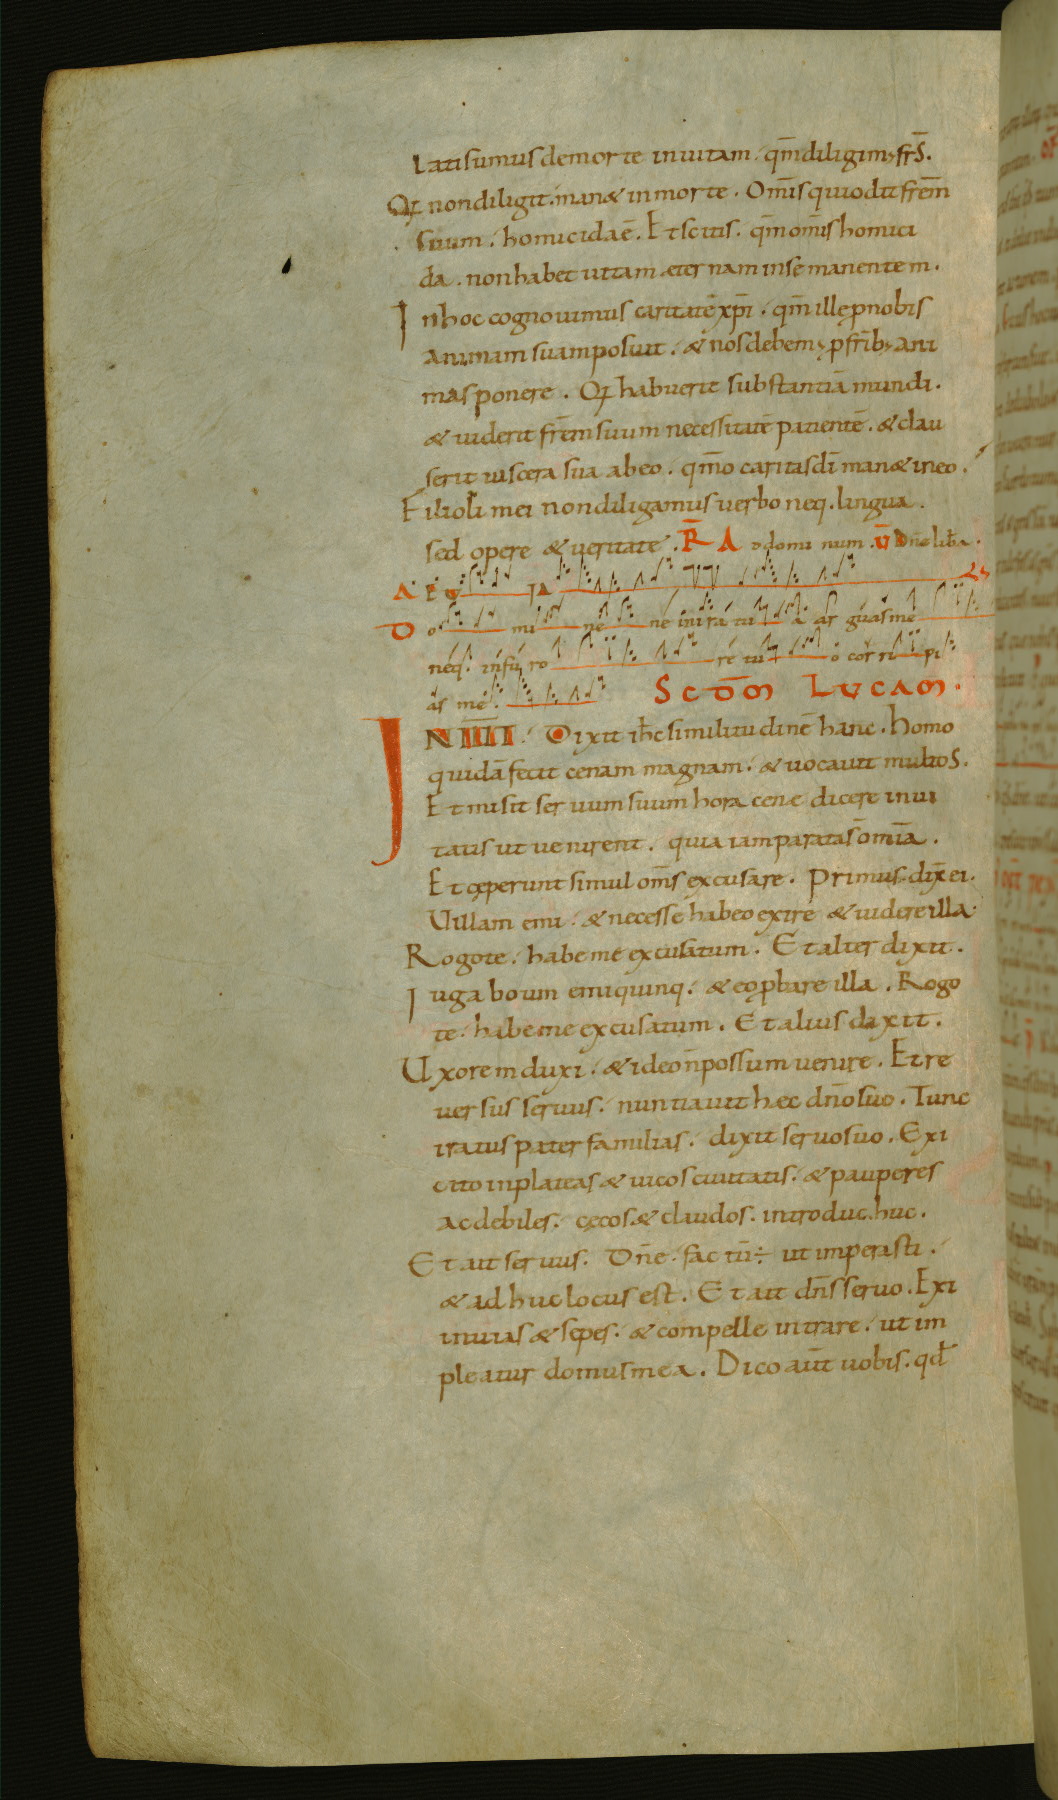 lati sumus de morte in uitam. qm̄ diligim; fr̄s.
Qꝛ non diligit. manæ in morte. Om̄is qui odit frēm
suum. homicida ē. Et scitis. qm̄ om̄is homici
da. non habet uitam æternam in se manentem.
In hoc cognouimus caritatē xp̄i. qm̄ ille p nobis
animam suam posuit. & nos debem; p frīb; ani
mas ponere. Qꝛ habuerit substantiā mundi.
& uiderit frēm suum necessitatē patientē. & clau
serit uiscera sua ab eo. qm̄o caritas dī manæ in eo.
Filioli mei non diligamus uerbo neq. lingua.
sed opere & ueritate. R̄ A d dominum. V̄ Dn̄e libera.
A E u IA
Domine ne in ira tua arguas me
neq. in furore tuo corripi
as me. SCD̄M LUCAM.
IN IIII. Dixit ih̄c similitudinē hanc. Homo
quidā fecit cenam magnam. & uocauit multos.
Et misit seruum suum hora cene dicere inui
tatis ut uenirent. quia iam parata s̄ om̄ia.
Et cęperunt simul om̄s excusare. Primus. dix̄ ei.
Uillam emi. & necesse habeo exire & uidere illā.
Rogo te. habe me excusatum. Et alter dixit.
Iuga boum emi quinq. & eo ꝓbare illa. Rogo
te. habe me excusatum. Et alius dixit.
Uxorem duxi. & ideo n̄ possum uenire. Et re
uersus seruus. nuntiauit hæc dn̄o suo. Tunc
iratus pater familias. dixit seruo suo. Exi
cito in plateas & uicos ciuitatis. & pauperes
ac debiles. cęcos. & claudos. introduc. huc.
Et ait seruus. Dn̄e. factū ÷ ut imperasti.
& ad huc locus est. Et ait dn̄s seruo. Exi
in uias & sepes. & compelle intrare. ut im
pleatur domus mea. Dico aut̄ uobis. qd̄